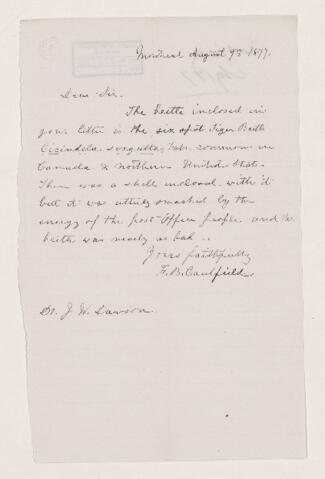 Montreal August 9th 1877.
Dear Sir.
The beetle inclosed in
your letter is the six spot Tiger Beetle
Cicindela sexguttata, Fabr. common in
Canada & Northern United Stat.
There was a shell inclosed with it
but it was utterly smashed by the
energy of the post Office people. and the
beetle was nearly as bad..
Yours faithfully
F. B. Caulfield.
Dr. J. W. Dawson.